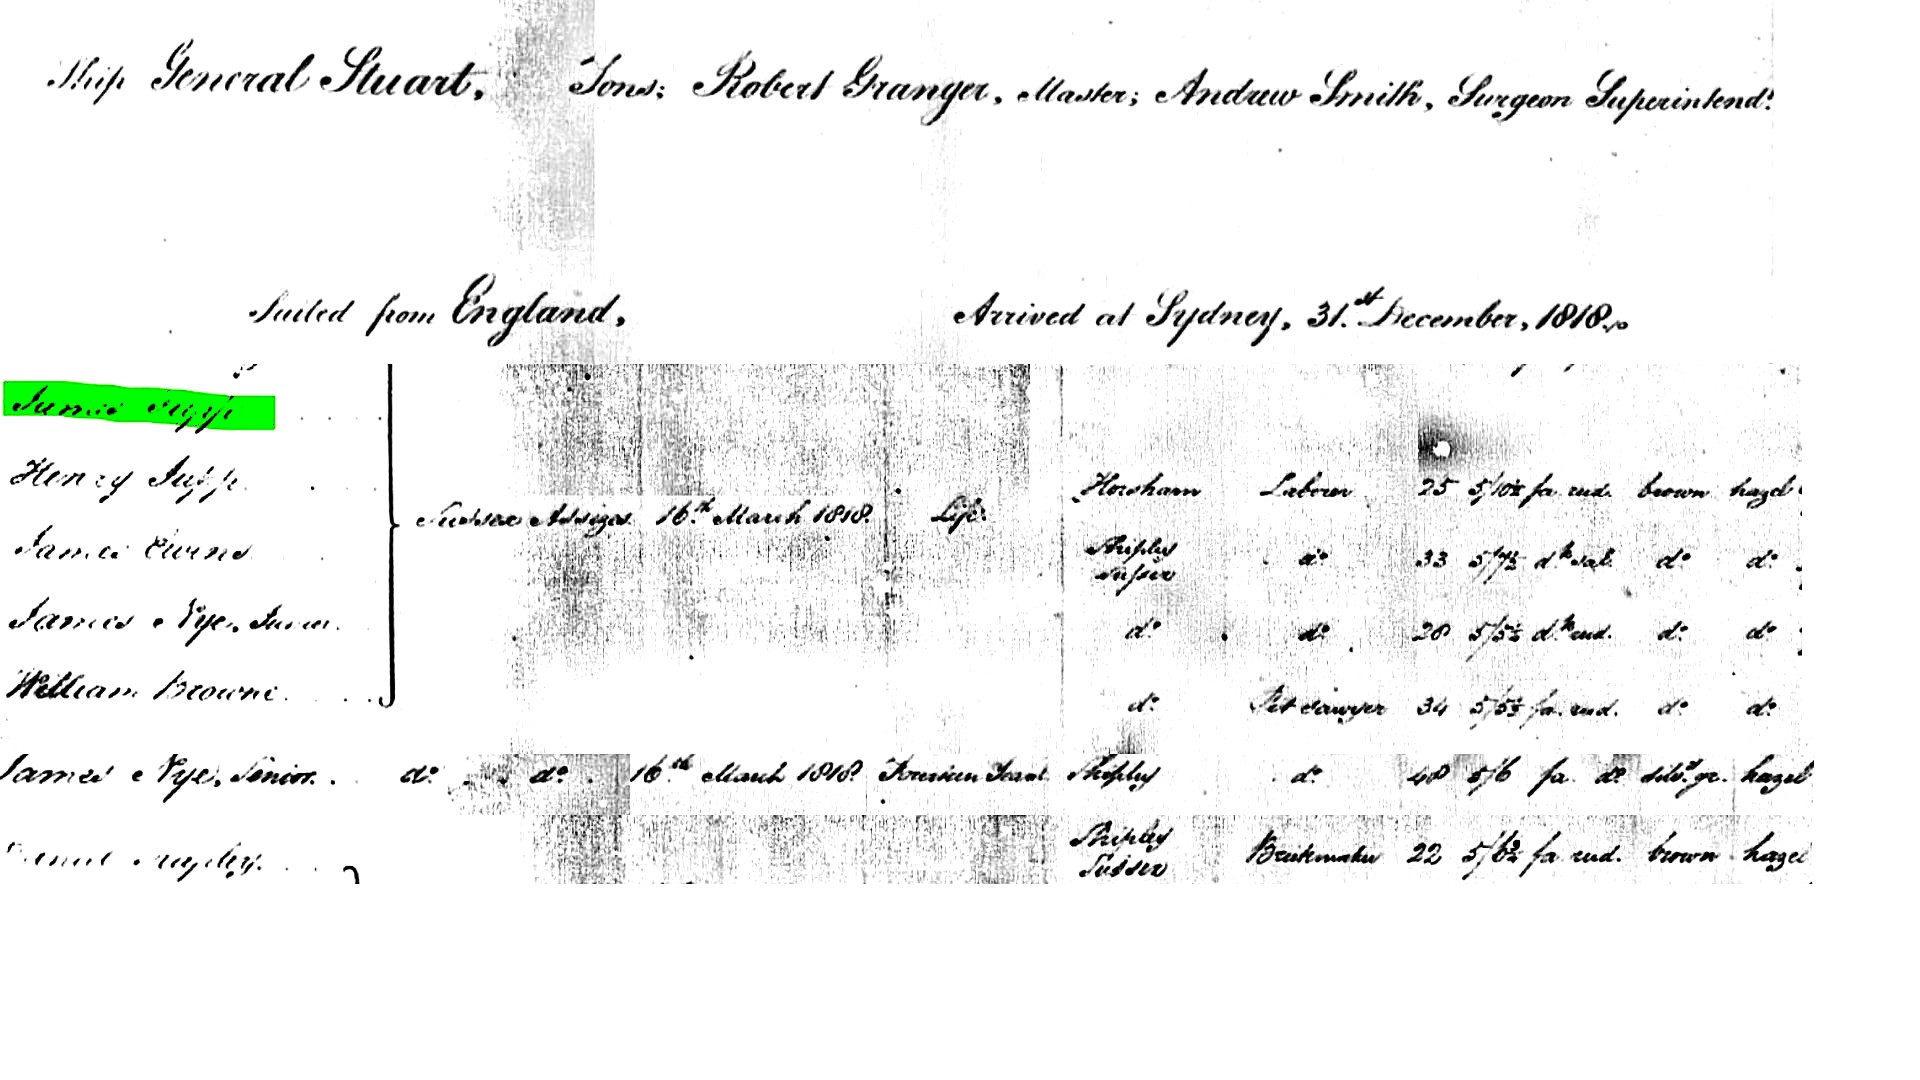 Ship General Stuart, Tons; Robert Granger, Master; Andrew Smith, Surgeon Superintendt.
Sailed from England, Arrived at Sydney, 31.st December, 1818.
James Jupp
Henry Jupp Horsham Laborer 25 5/10½ fa. rud. brown hazel
Sussex Assizes 16.th March 1818. Life
James Ewens Shipley Sussex do. 33 5/7½ dk. sal. do. do.
James Nye, Junior. do. do. 28 5/5½ dk. rud. do. do.
William Browne do. Pit sawyer 34 5/5½ fa. rud. do. do.
James Nye, Senior. do. do. 16th March 1818. Fourteen Years. Shipley do. 48 5/6 fa. do. silvr. gr. hazel
Shipley Sussex Brickmaker 22 fa. rud. brown hazel